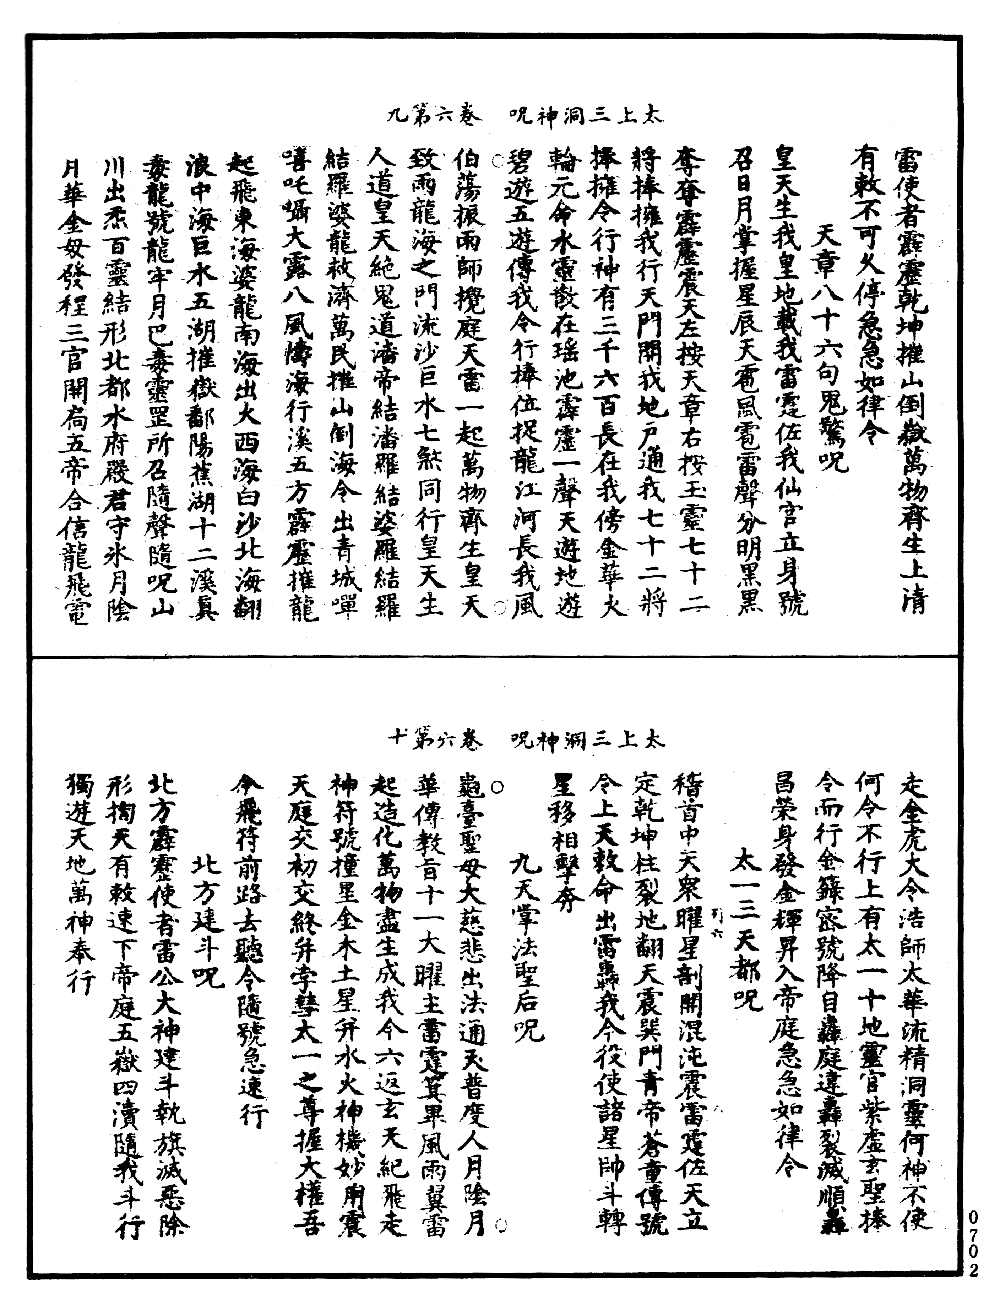 太上三洞神呪　卷六第九
雷使者霹靂乾坤摧山倒嶽萬物齊生上清
有敕不可久停急急如律令
天章八十六句鬼驚呪
皇天生我皇地載我雷霆佐我仙官立身號
召日月掌握星辰天雹風雹雷聲分明黑黑
奪奪霹靂震天左按天章右按玉靈七十二
將捧擁我行天門開我地戶通我七十二將
捧擁令行神有三千六百長在我傍金華火
輪元命水靈散在瑤池霹靂一聲天遊地遊
碧遊五遊傳我令行捧位捉龍江河長我風
伯蕩振雨師攪庭天雷一起萬物齊生皇天
致雨龍海之門流沙巨水七煞同行皇天生
人道皇天絕鬼道潘帝結潘羅結婆羅結羅
結羅婆龍救濟萬民摧山倒海令出青城嘽
嘻吒囁大露八風儔海行溪五方霹靂摧龍
起飛東海婆龍南海出大西海白沙北海翻
浪中海巨水五湖摧嶽鄱陽蕉湖十二溪真
毒龍號龍牢月巴毒靈罡所召隨聲隨呪山
川出炁百靈結形北都水府殿君守氷月陰
月華金母發程三官開扃五帝合信龍飛電
太上三洞神呪　卷六第十
走金虎大令浩師太華流精洞靈何神不使
何令不行上有太一十地靈官紫虛玄聖捧
令而行金籙密號降自轟庭違轟裂滅順轟
昌榮身發金輝昇入帝庭急急如律令
太一三天都呪
稽首中天衆曜星剖開混沌震雷霆佐天立
定乾坤柱裂地翻天震巽門青帝蒼童傳號
令上天敕命出雷轟我今役使諸星帥斗轉
星移相擊奔
九天掌法聖后呪
䰠臺聖母大慈悲出法通天普度人月陰月
華傳教旨十一大曜主雷霆箕畢風雨翼雷
起造化萬物盡生成我今六返玄天紀飛走
神符號撞星金木土星并水火神機妙用震
天庭交初交終并孛彗太一之尊握大權吾
今飛符前路去聽令隨號急速行
北方建斗呪
北方霹靂使者雷公大神建斗執旗滅惡除
形擉天有敕速下帝庭五嶽四瀆隨我斗行
獨遊天地萬神奉行
0702